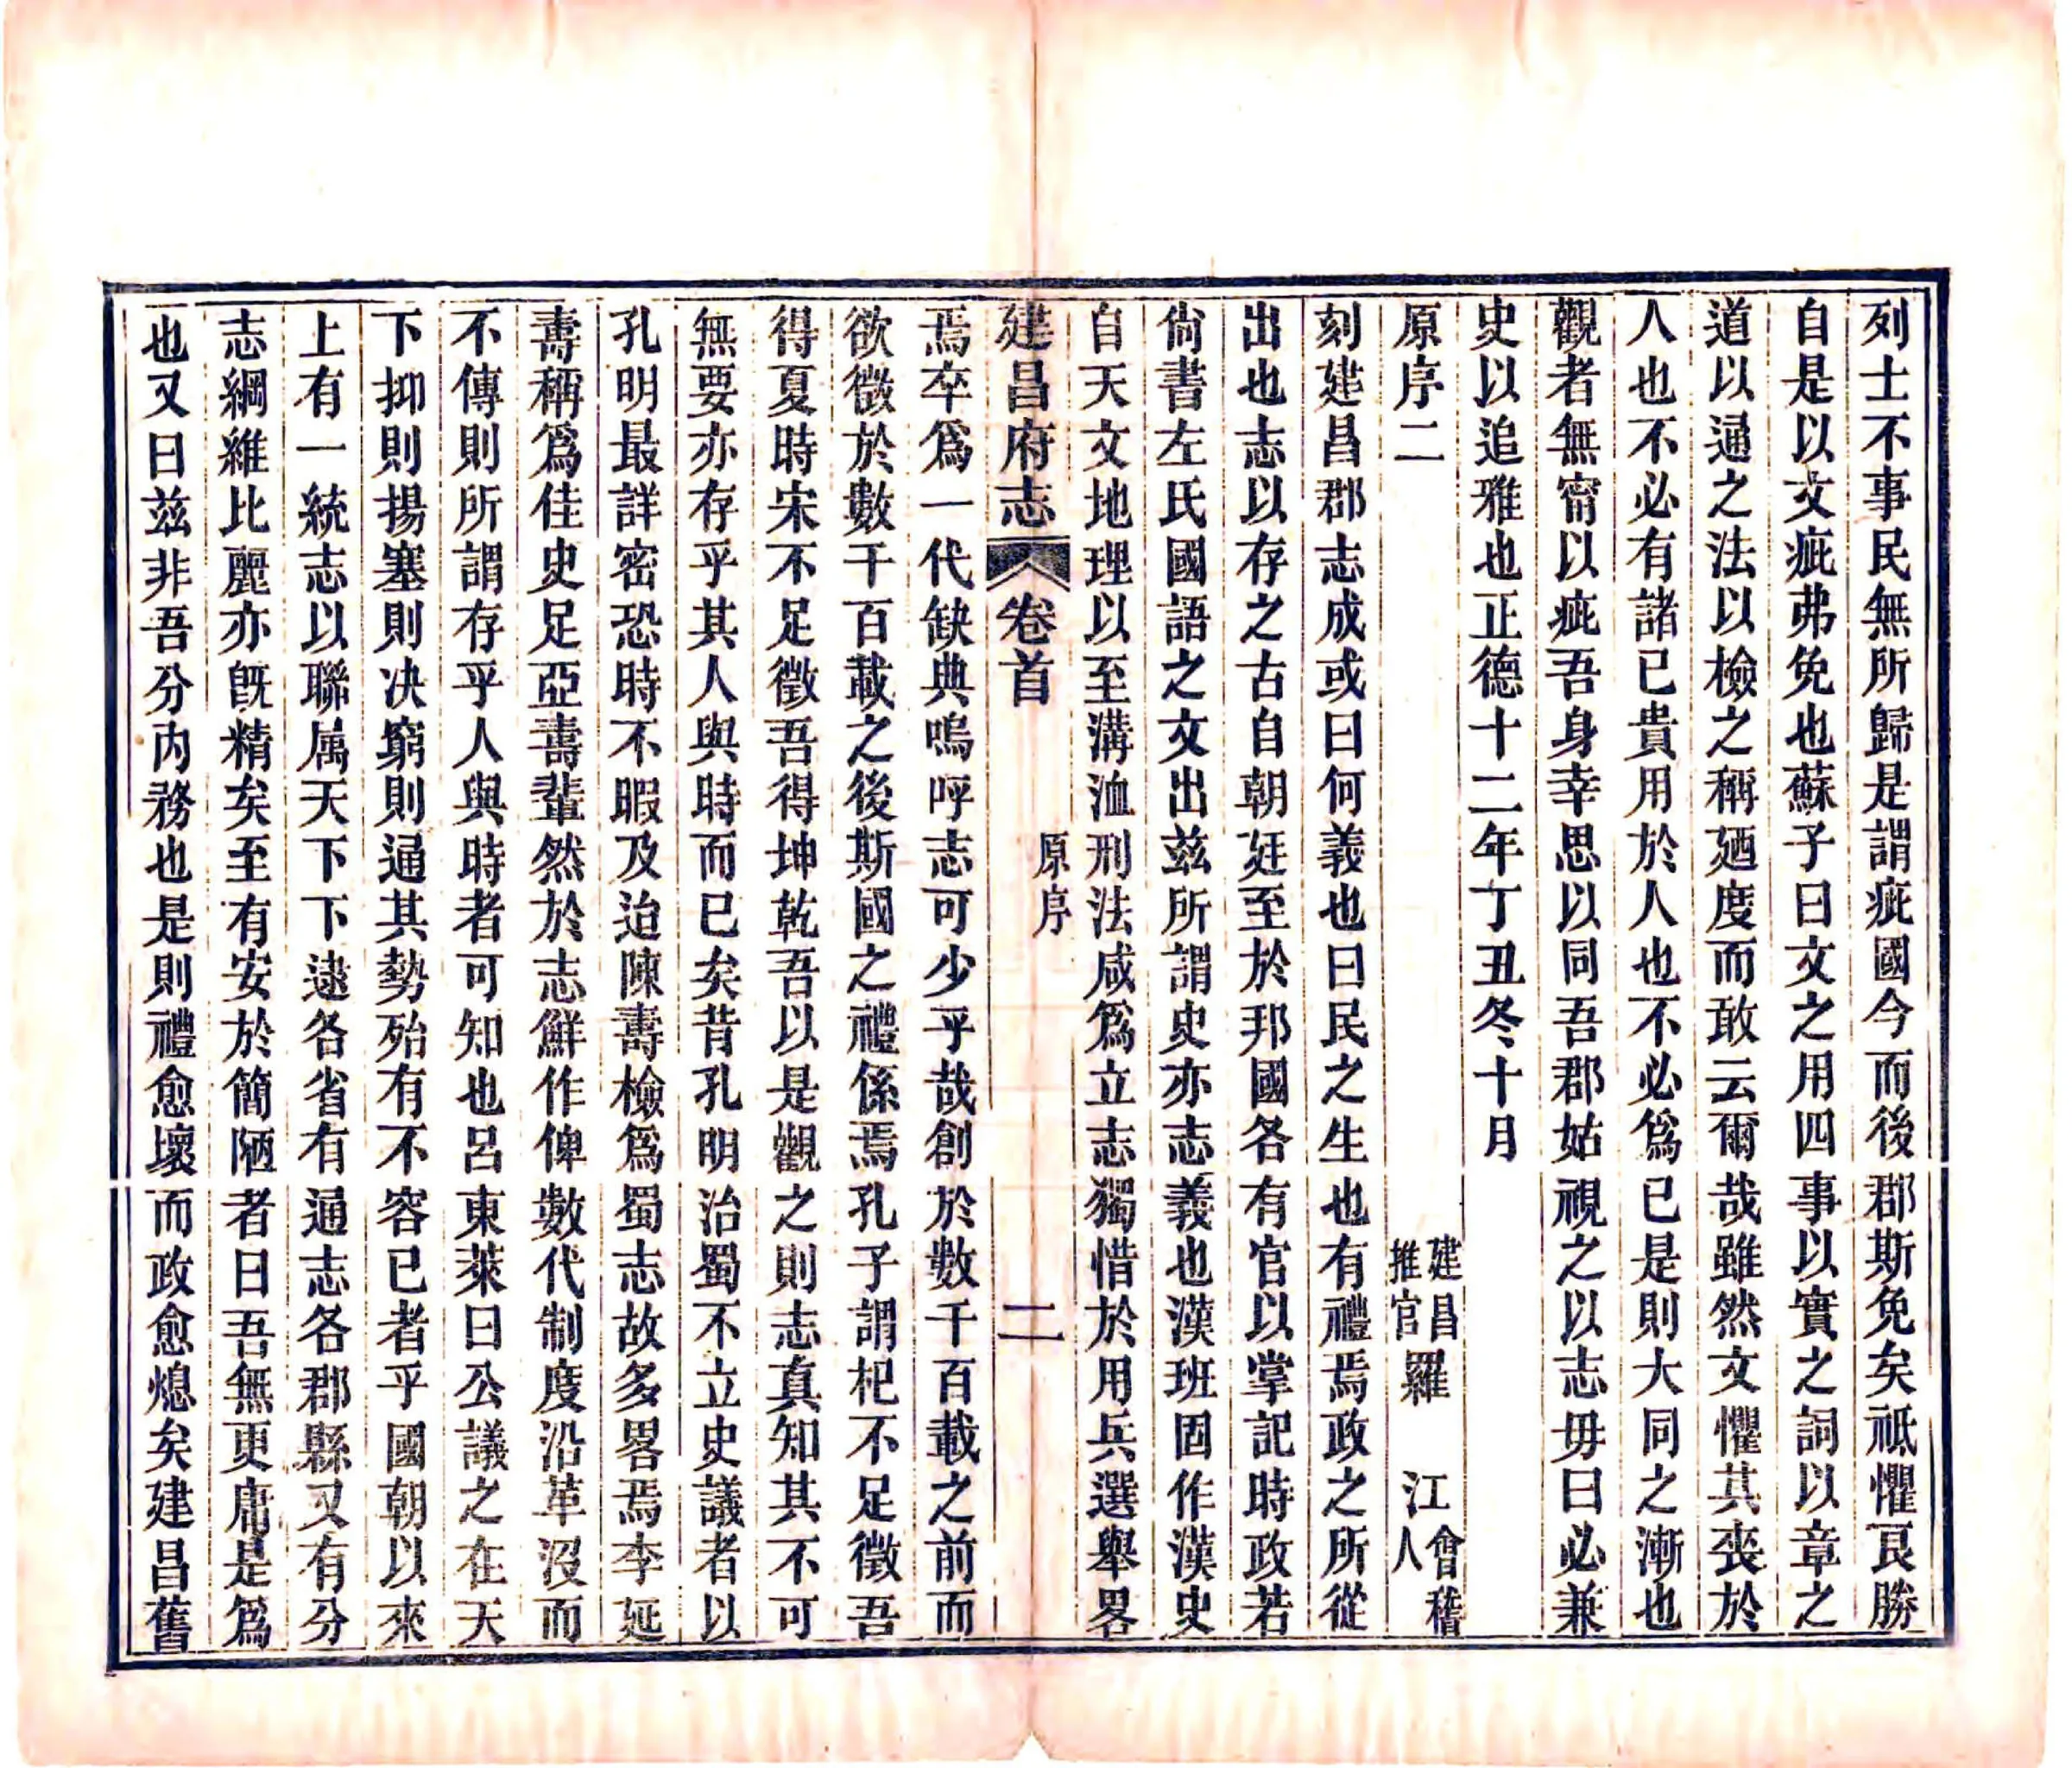 列士不事民無所歸是謂疵國今而後郡斯免矣祗懼艮勝
自是以文疵弗免也蘇子曰文之用四事以實之詞以章之
道以通之法以檢之稱廼度而敢云爾哉雖然文懼其喪於
人也不必有諸已貴用於人也不必爲已是則大同之漸也
觀者無甯以疵吾身幸思以同吾郡姑視之以志毋曰必兼
史以追雅也正德十二年丁丑冬十月
原序二
建昌
推官
羅江
會稽
人
刻建昌郡志成或曰何義也曰民之生也有禮焉政之所從
出也志以存之古自朝廷至於邦國各有官以掌記時政若
尙書左氏國語之文出茲所謂史亦志義也漢班固作漢史
自天文地理以至溝洫刑法咸爲立志獨惜於用兵選舉畧
建昌府志
卷首
原序
二
焉卒爲一代缺典嗚呼志可少乎哉創於數千百載之前而
欲徵於數千百載之後斯國之禮係焉孔子謂杞不足徵吾
得夏時宋不足徵吾得坤乾吾以是觀之則志真知其不可
無要亦存乎其人與時而已矣昔孔明治蜀不立史議者以
孔明最詳密恐時不暇及迨陳壽檢爲蜀志故多畧焉李延
壽稱爲佳史足亞壽輩然於志鮮作俾數代制度沿革沒而
不傳則所謂存乎人與時者可知也呂東萊曰公議之在天
下抑則揚塞則决窮則通其勢殆有不容已者乎國朝以來
上有一統志以聯属天下下逮各省有通志各郡縣又有分
志綱維比麗亦旣精矣至有安於簡陋者曰吾無更庸是爲
也又曰茲非吾分内務也是則禮愈壞而政愈熄矣建昌舊